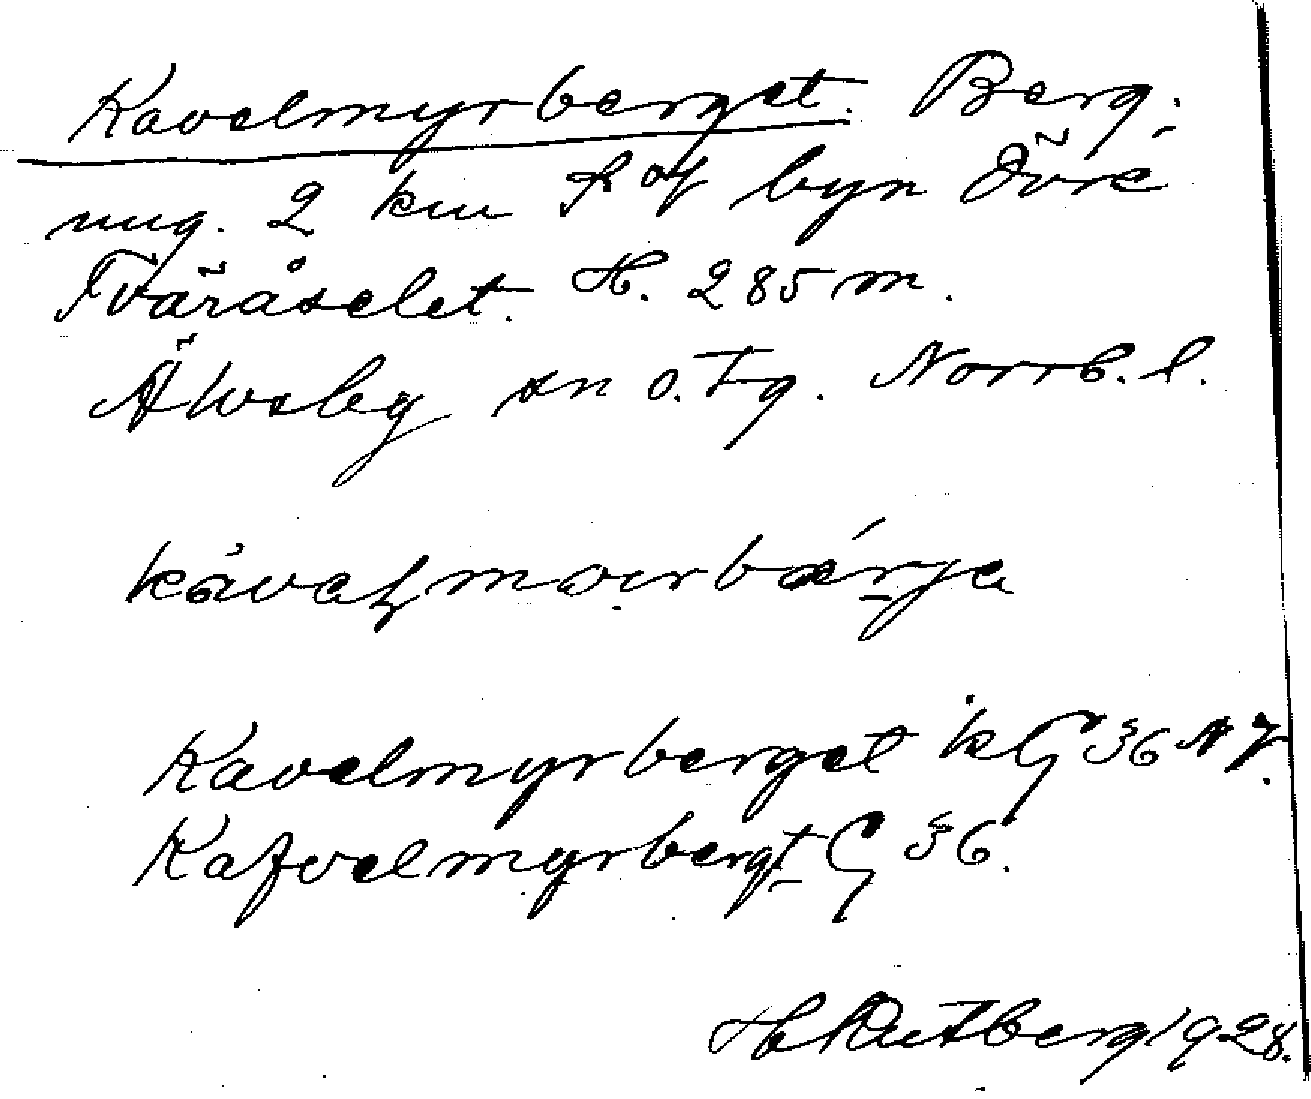 Kavelmyrberget. Berg.
ung. 2 km S of byn Övre
Tväråselet. H. 285 m.
Älvsby sn o. tg. Norrb. l.
Kavelmyrberget kG 36 NJ.
Kafvelmyrbergt G 36.
H. Rutberg 1928.